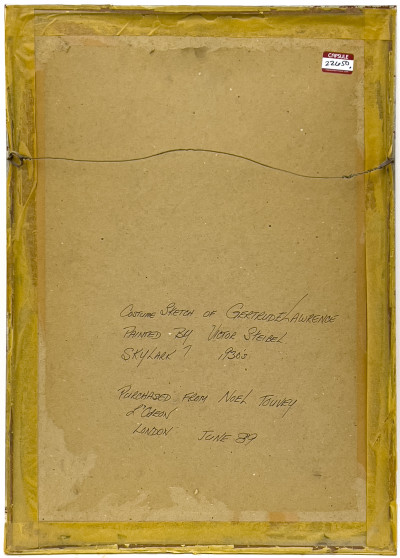 CAPSULE
22650
COSTUME SKETCH OF GERTRUDE LAWRENCE
PAINTED BY VICTOR STEIBEL
SKYLARK ? 1930S
PURCHASED FROM NOEL TOUVEY
L'ODEON
LONDON JUNE 89